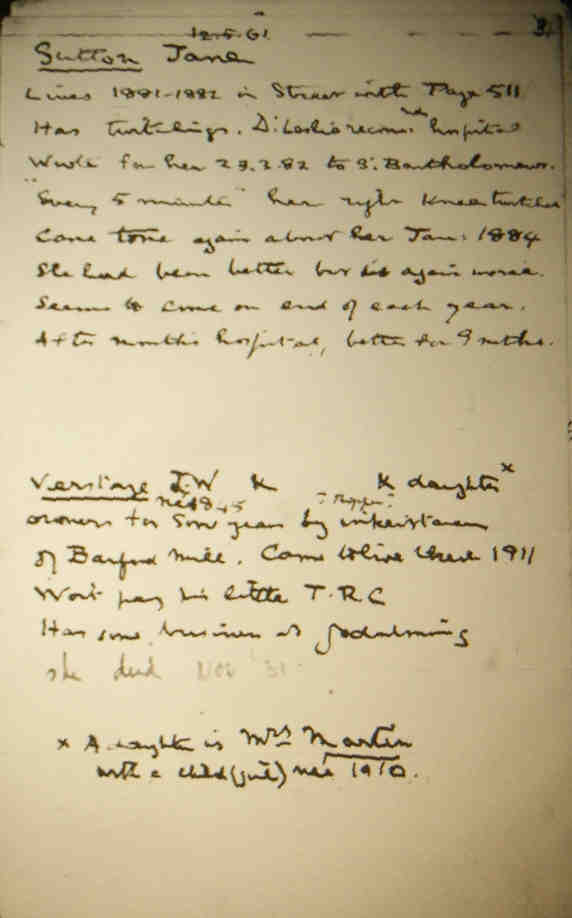 12.5.61
Sutton Jane
Lives 1881-1882 in Street with Page 511
Has twitchings. Dr Leslie recom: hospital
Wrote for her 23.2.82 to St. Bartholomews.
"Every 5 minutes" her right knee twitches
Came to me again about her Jan: 1884
She had been better but is again worse.
Seems to come on end of each year.
After months hospital, better for 9 mths.
Verstage J.W & & daughter x
né 1845
owners for some years by inheritance
of Barford Mill. Came to live there 1911
Won't pay his little T.R.C
Has some business at Godalming
she died Nov '31.
x A daughter is Mrs Martin
with a child (girl) née 1910.